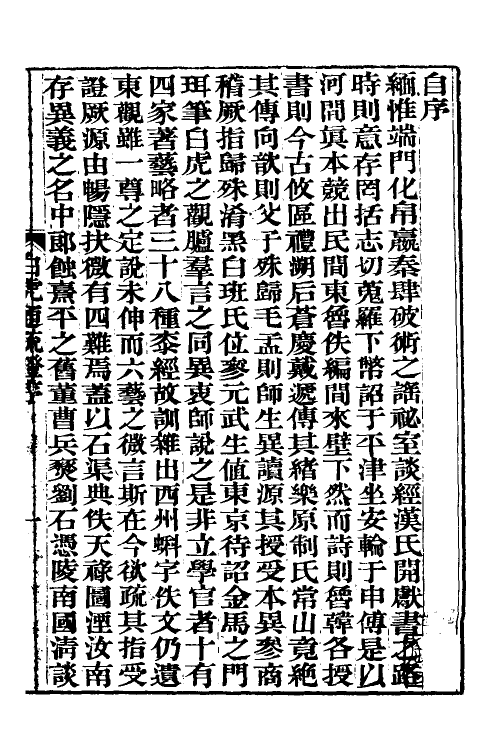 自序
緬惟端門化帛嬴秦肆破術之謠祕室談經漢氏開獻書之路
時則意存罔括志切蒐羅下幣詔于平津坐安輪于申傅是以
河間眞本競出民間東魯佚編間來壁下然而詩則魯韓各授
書則今古攸區禮溯后蒼慶戴遞傳其緒樂原制氏常山竟絕
其傳向歆則父子殊歸毛孟則師生異讀源其授受本異參商
稽厥指歸殊淆黑白班氏位參元武生值東京待詔金馬之門
珥筆白虎之觀臚羣言之同異衷師說之是非立學官者十有
四家著藝略者三十八種泰經故訓雜出西州蝌字佚文仍遺
東觀雖一尊之定說未伸而六藝之微言斯在今欲疏其指受
證厥源由暢隱抉微有四難焉蓋以石渠典佚天祿圖湮汝南
存異義之名中郎蝕熹平之舊董曹兵燹劉石憑陵南國淸談
白虎通疏證序
一